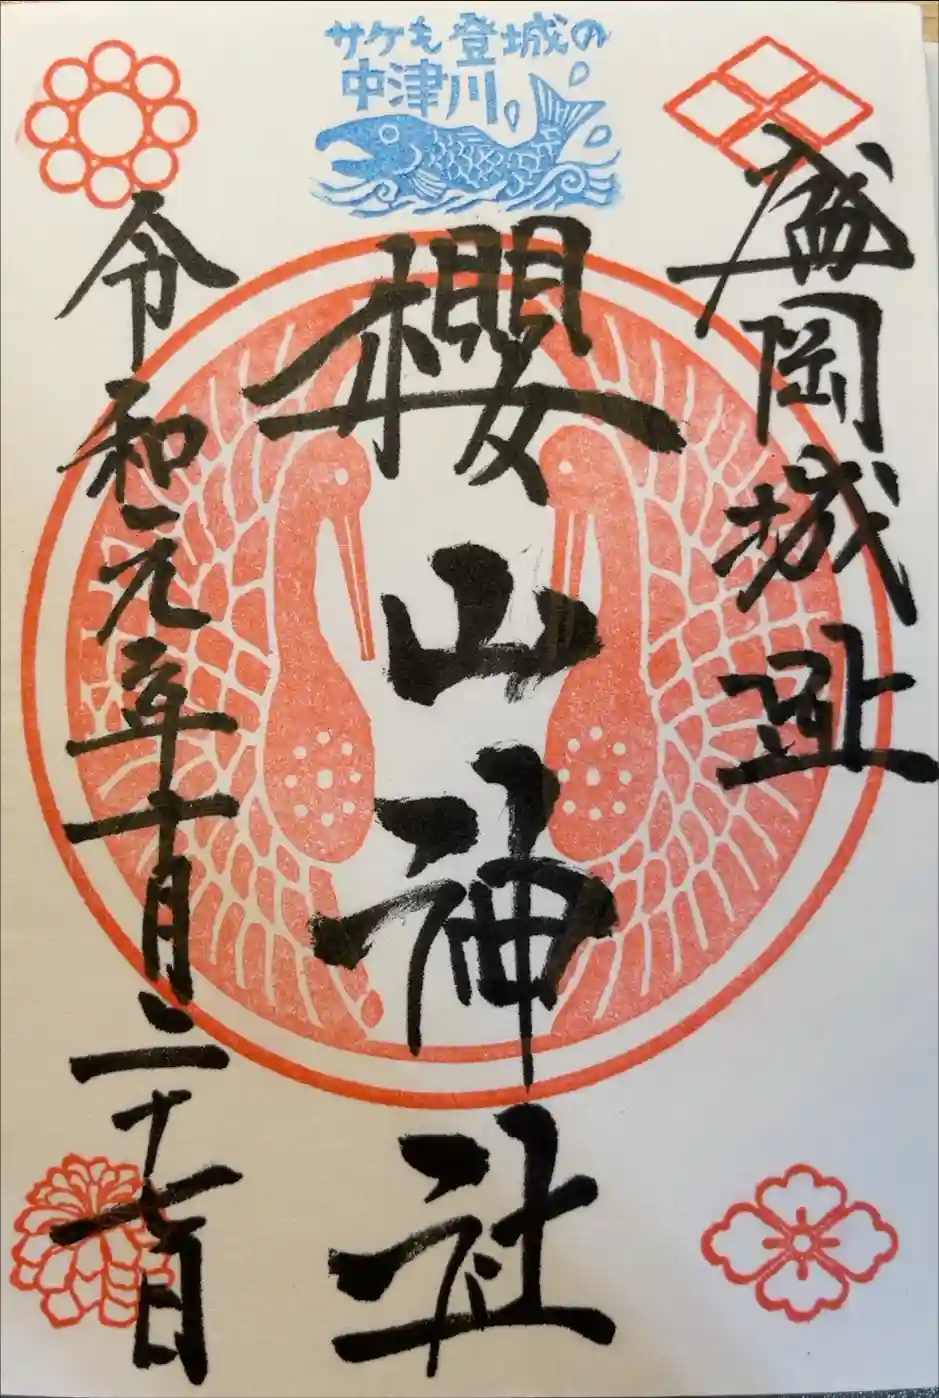 サケも登城の
中津川
盛岡城址
櫻山神社
令和元年十月二十七日